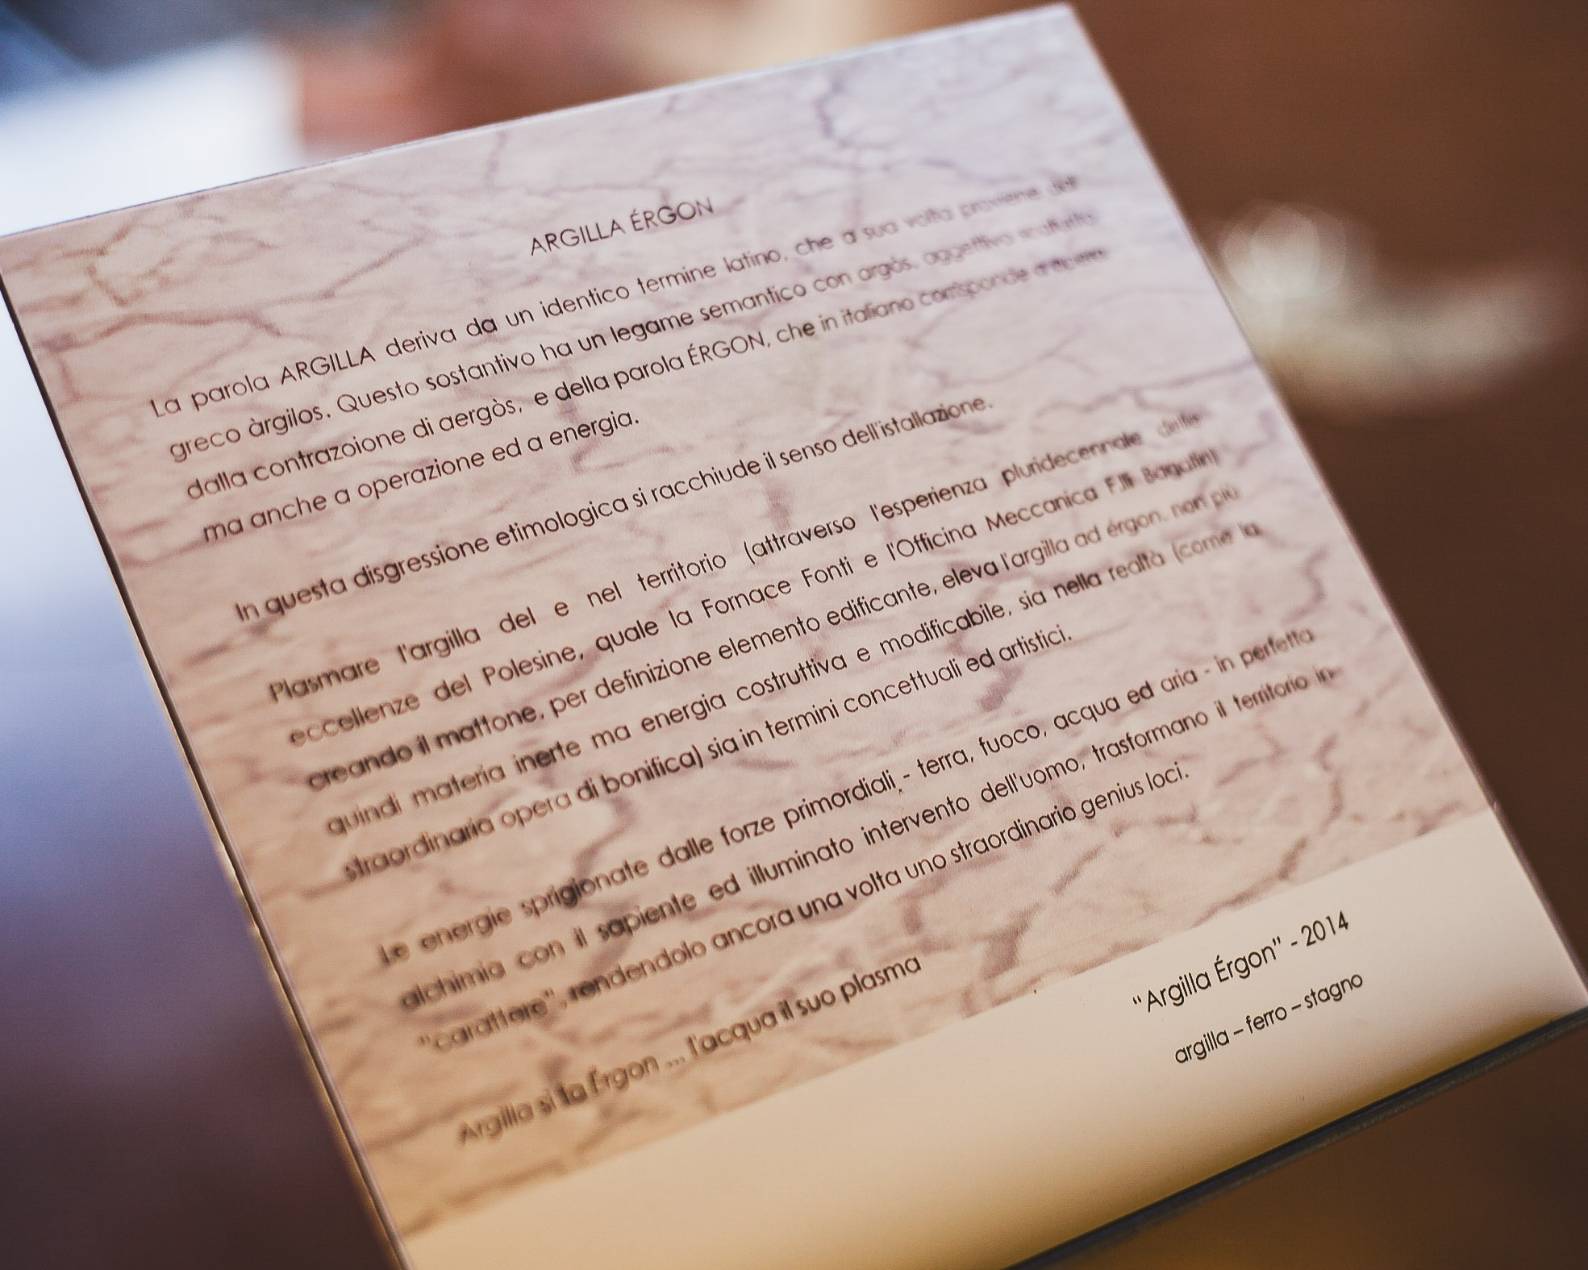 ARGILLA ÉRGON
La parola ARGILLA deriva da un identico termine latino, che a sua volta proviene dal
greco àrgilos. Questo sostantivo ha un legame semantico con argòs, aggettivo
dalla contrazoione di aergòs, e della parola ÉRGON, che in italiano corrisponde
ma anche a operazione ed a energia.
In questa disgressione etimologica si racchiude il senso dell'istallazione.
Plasmare l'argilla del e nel territorio (attraverso l'esperienza pluridecennale delle
eccellenze del Polesine, quale la Fornace Fonti e l'Officina Meccanica F.lli
creando il mattone, per definizione elemento edificante, eleva l'argilla ad érgon, non più
quindi materia inerte ma energia costruttiva e modificabile, sia nella realtà (come la
straordinaria opera di bonifica) sia in termini concettuali ed artistici.
Le energie sprigionate dalle forze primordiali - terra, fuoco, acqua ed aria - in perfetta
alchimia con il sapiente ed illuminato intervento dell'uomo, trasformano il territorio in
"carattere", rendendolo ancora una volta uno straordinario genius loci.
Argilla si fa Érgon ... l'acqua il suo plasma
"Argilla Érgon" - 2014
argilla – ferro – stagno